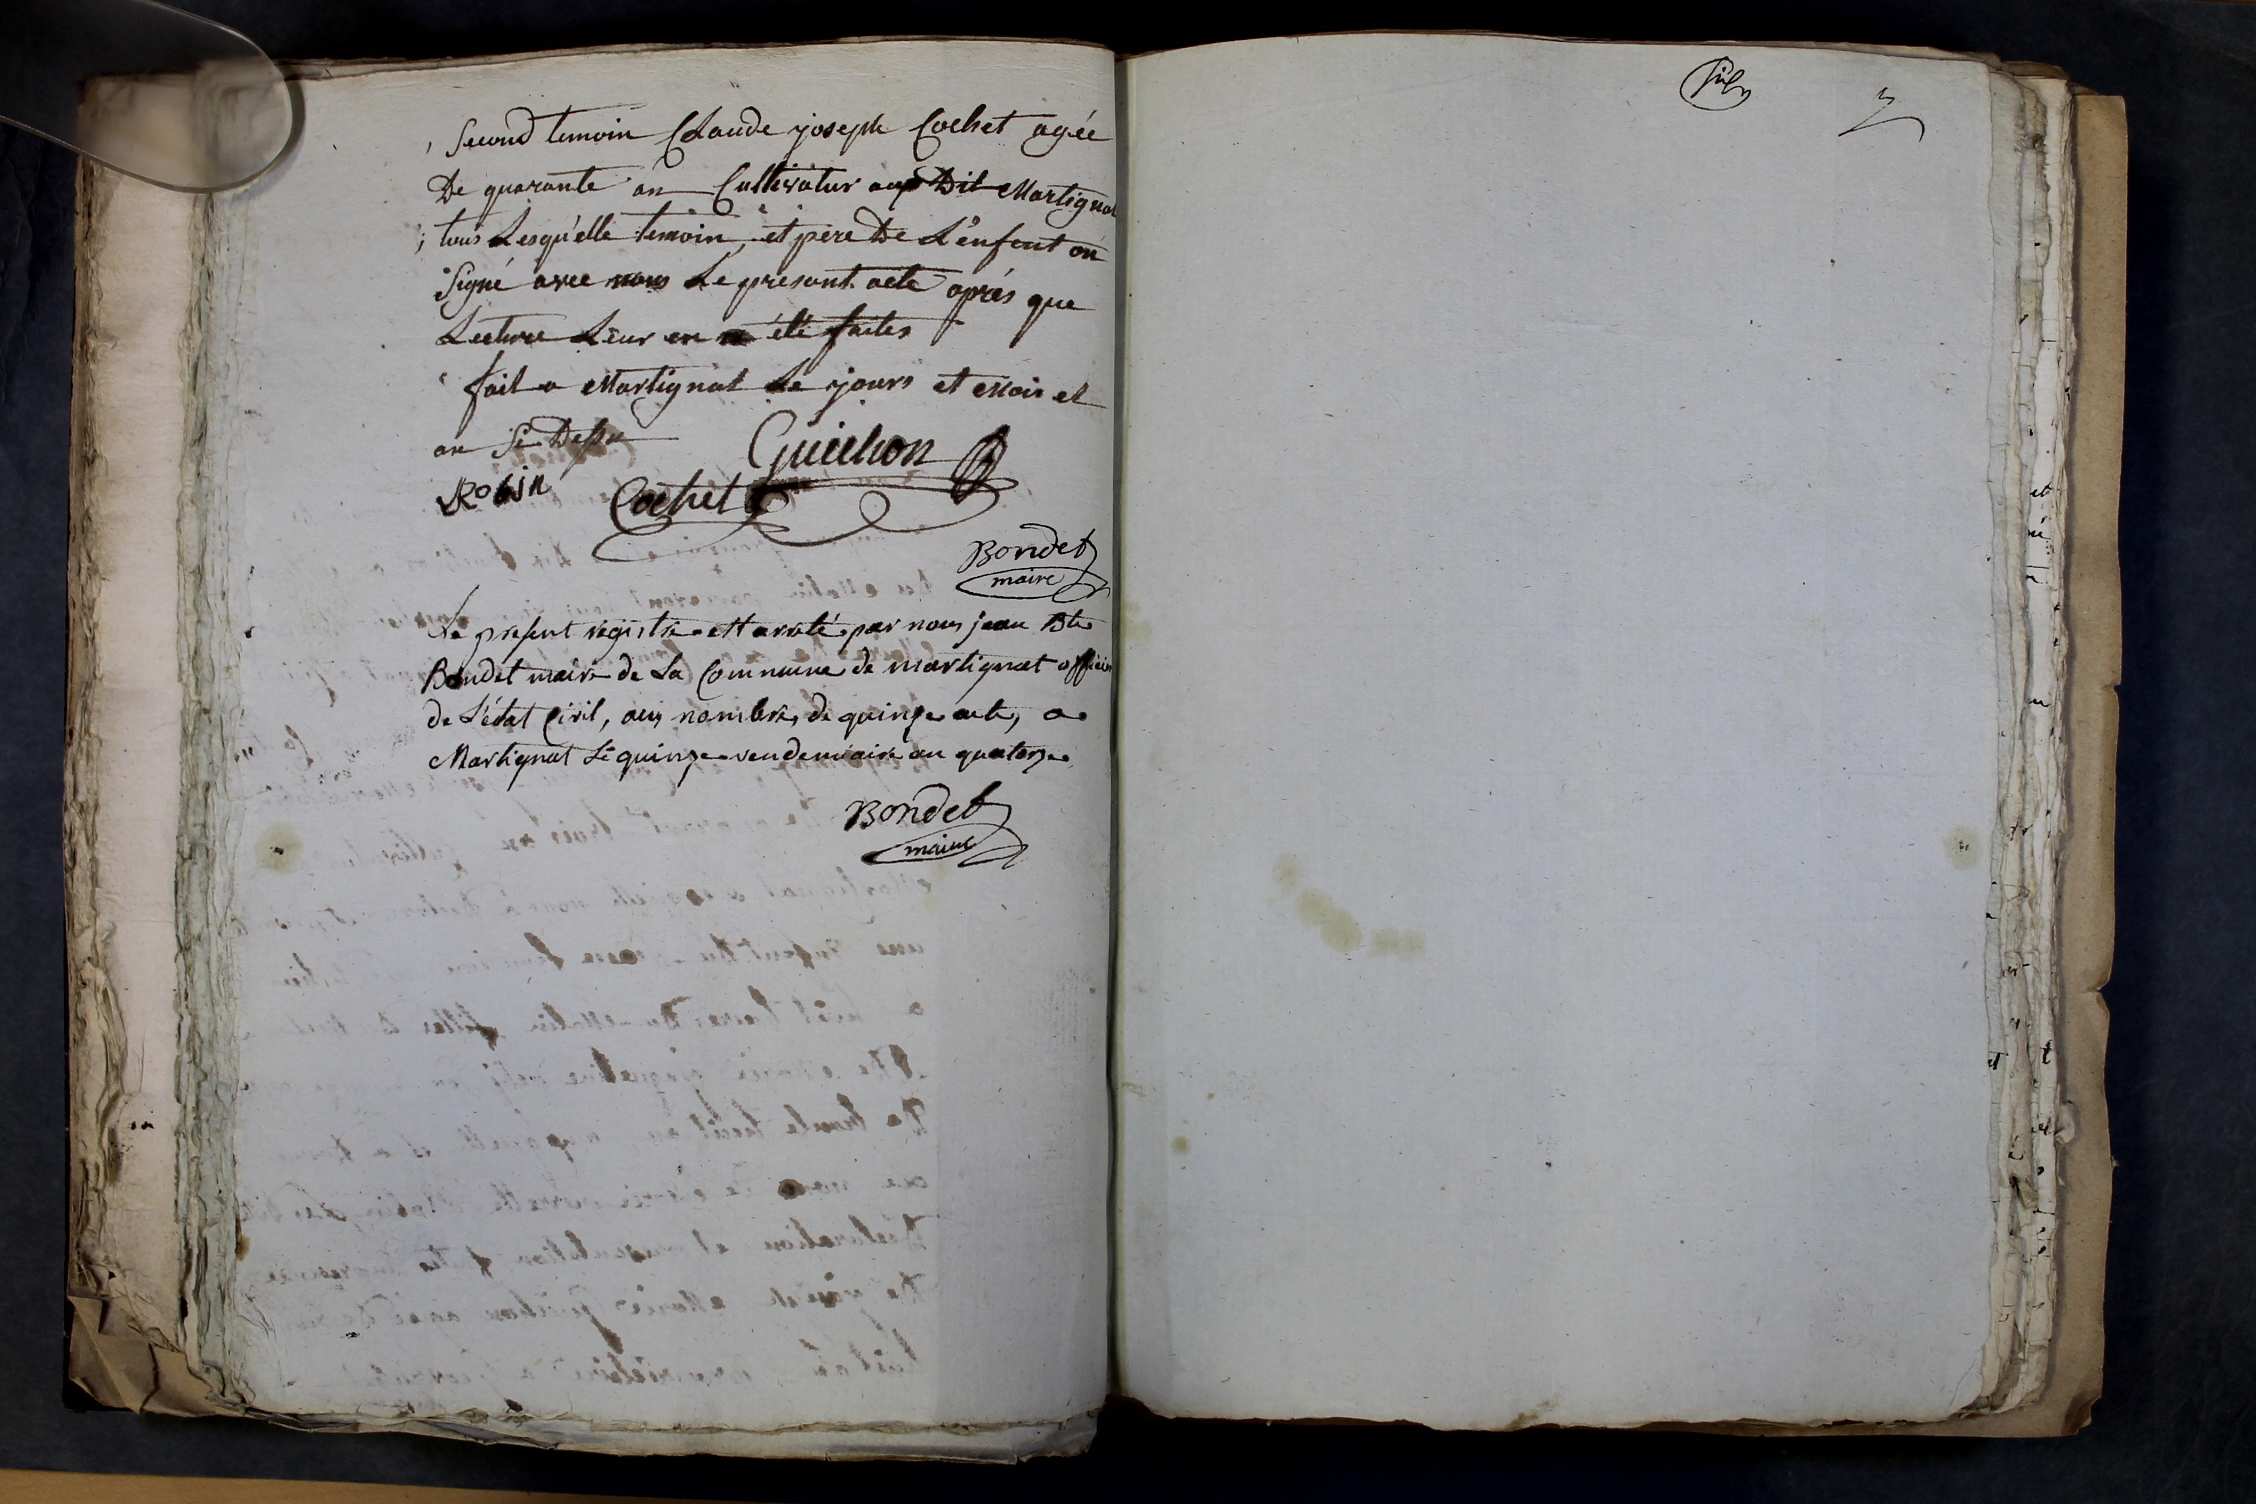 Second temoin Claude joseph Cochet agée
De quarante an Cultivatur aup Dit Martignat
; tous Lesqu'elle temoin, et pere De L'enfent on
Signé avec nous Le presant acte aprés que
Lecture Leur en a été faites
fait a Martignat Le jours et mois et
an Si Desu
Guichon
Robin
Cochet
Bondet
maire
Le present registre est arreté par nous jean Bte
Bondet maire de La Commune de martignat officier
de L'état Civil, au nombre de quinze acte, a
Martignat Le quinze vendemiaire an quatorze
Bondet
maire
7